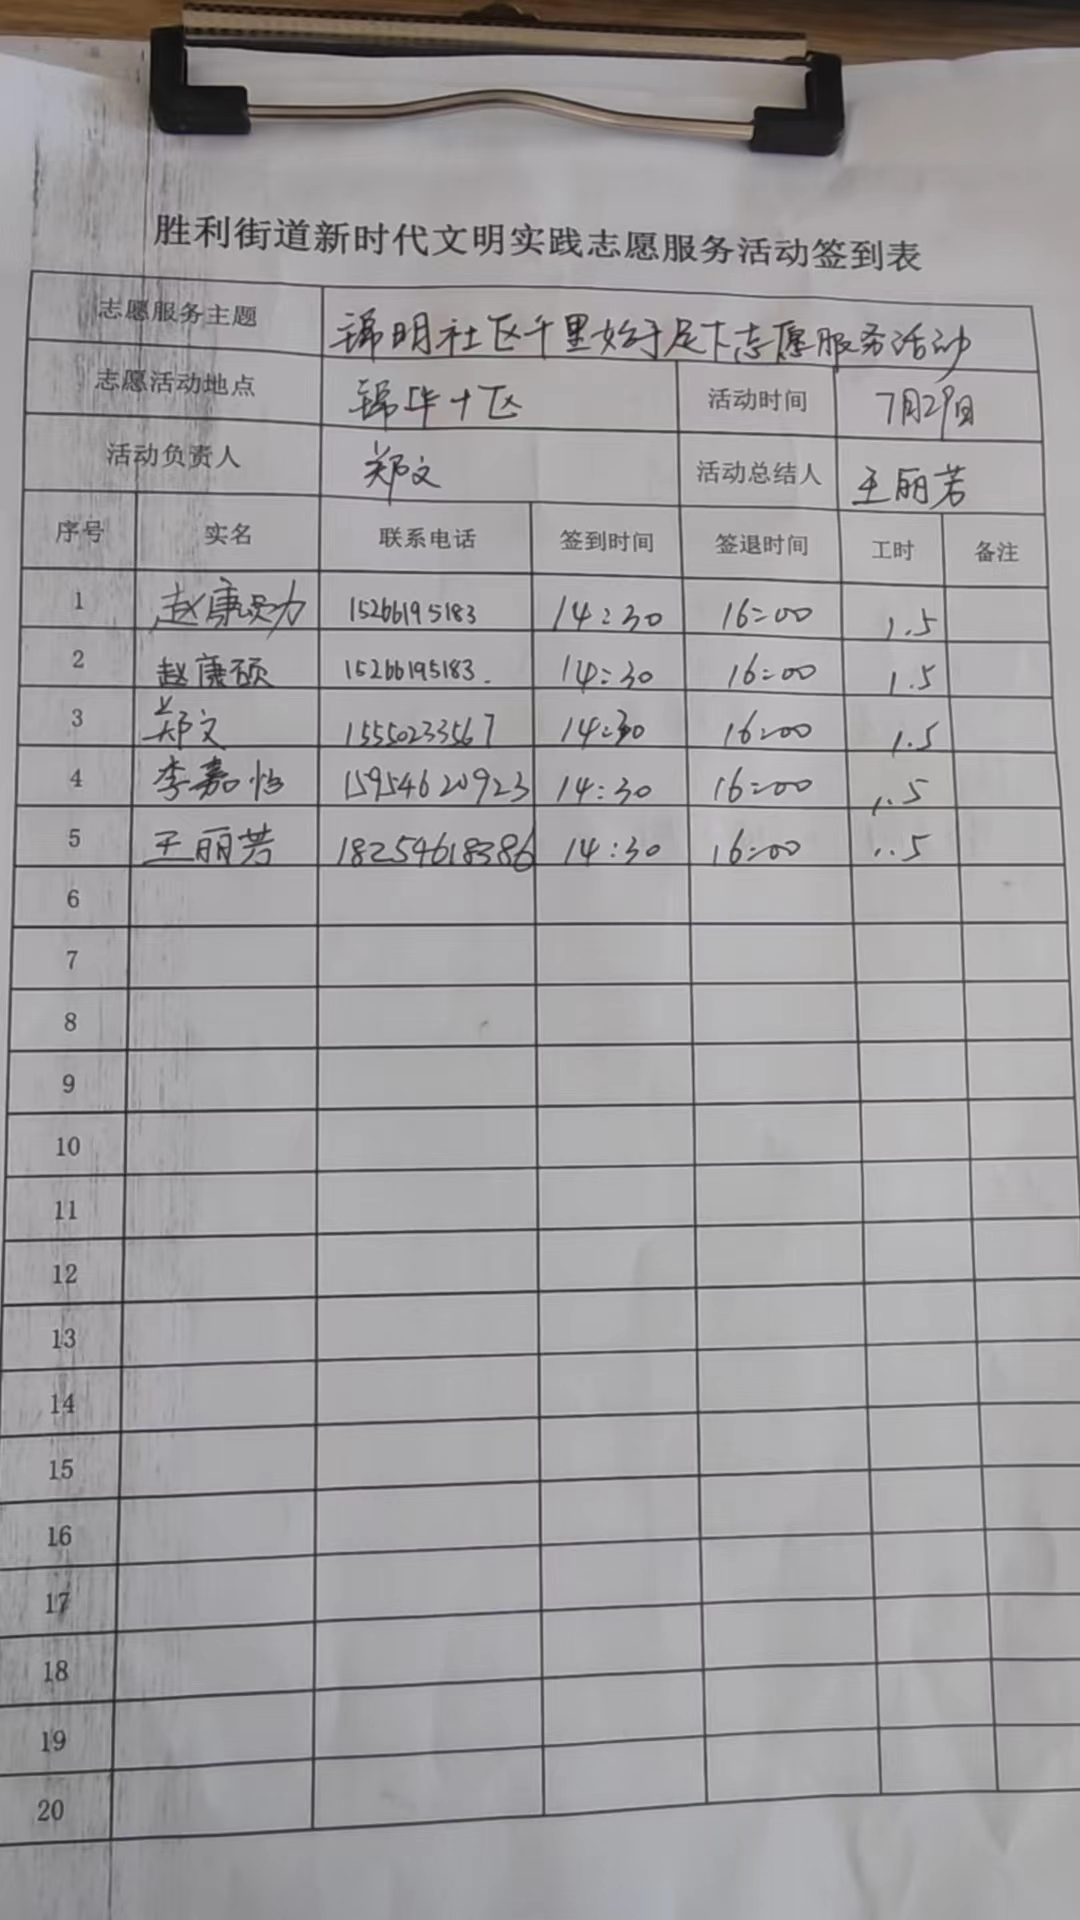 胜利街道新时代文明实践志愿服务活动签到表
志愿服务主题 锦明社区千里始于足下志愿服务活动
志愿活动地点 锦华十区 活动时间 7月29日
活动负责人 郑文 活动总结人 王丽芳
序号 实名 联系电话 签到时间 签退时间 工时 备注
1 赵康勋 15266195183 14:30 16:00 1.5
2 赵康硕 15266195183. 14:30 16:00 1.5
3 郑文 15550233567 14:30 16:00 1.5
4 李嘉怡 15954620923 14:30 16:00 1.5
5 王丽芳 18254618386 14:30 16:00 1.5
6
7
8
9
10
11
12
13
14
15
16
17
18
19
20